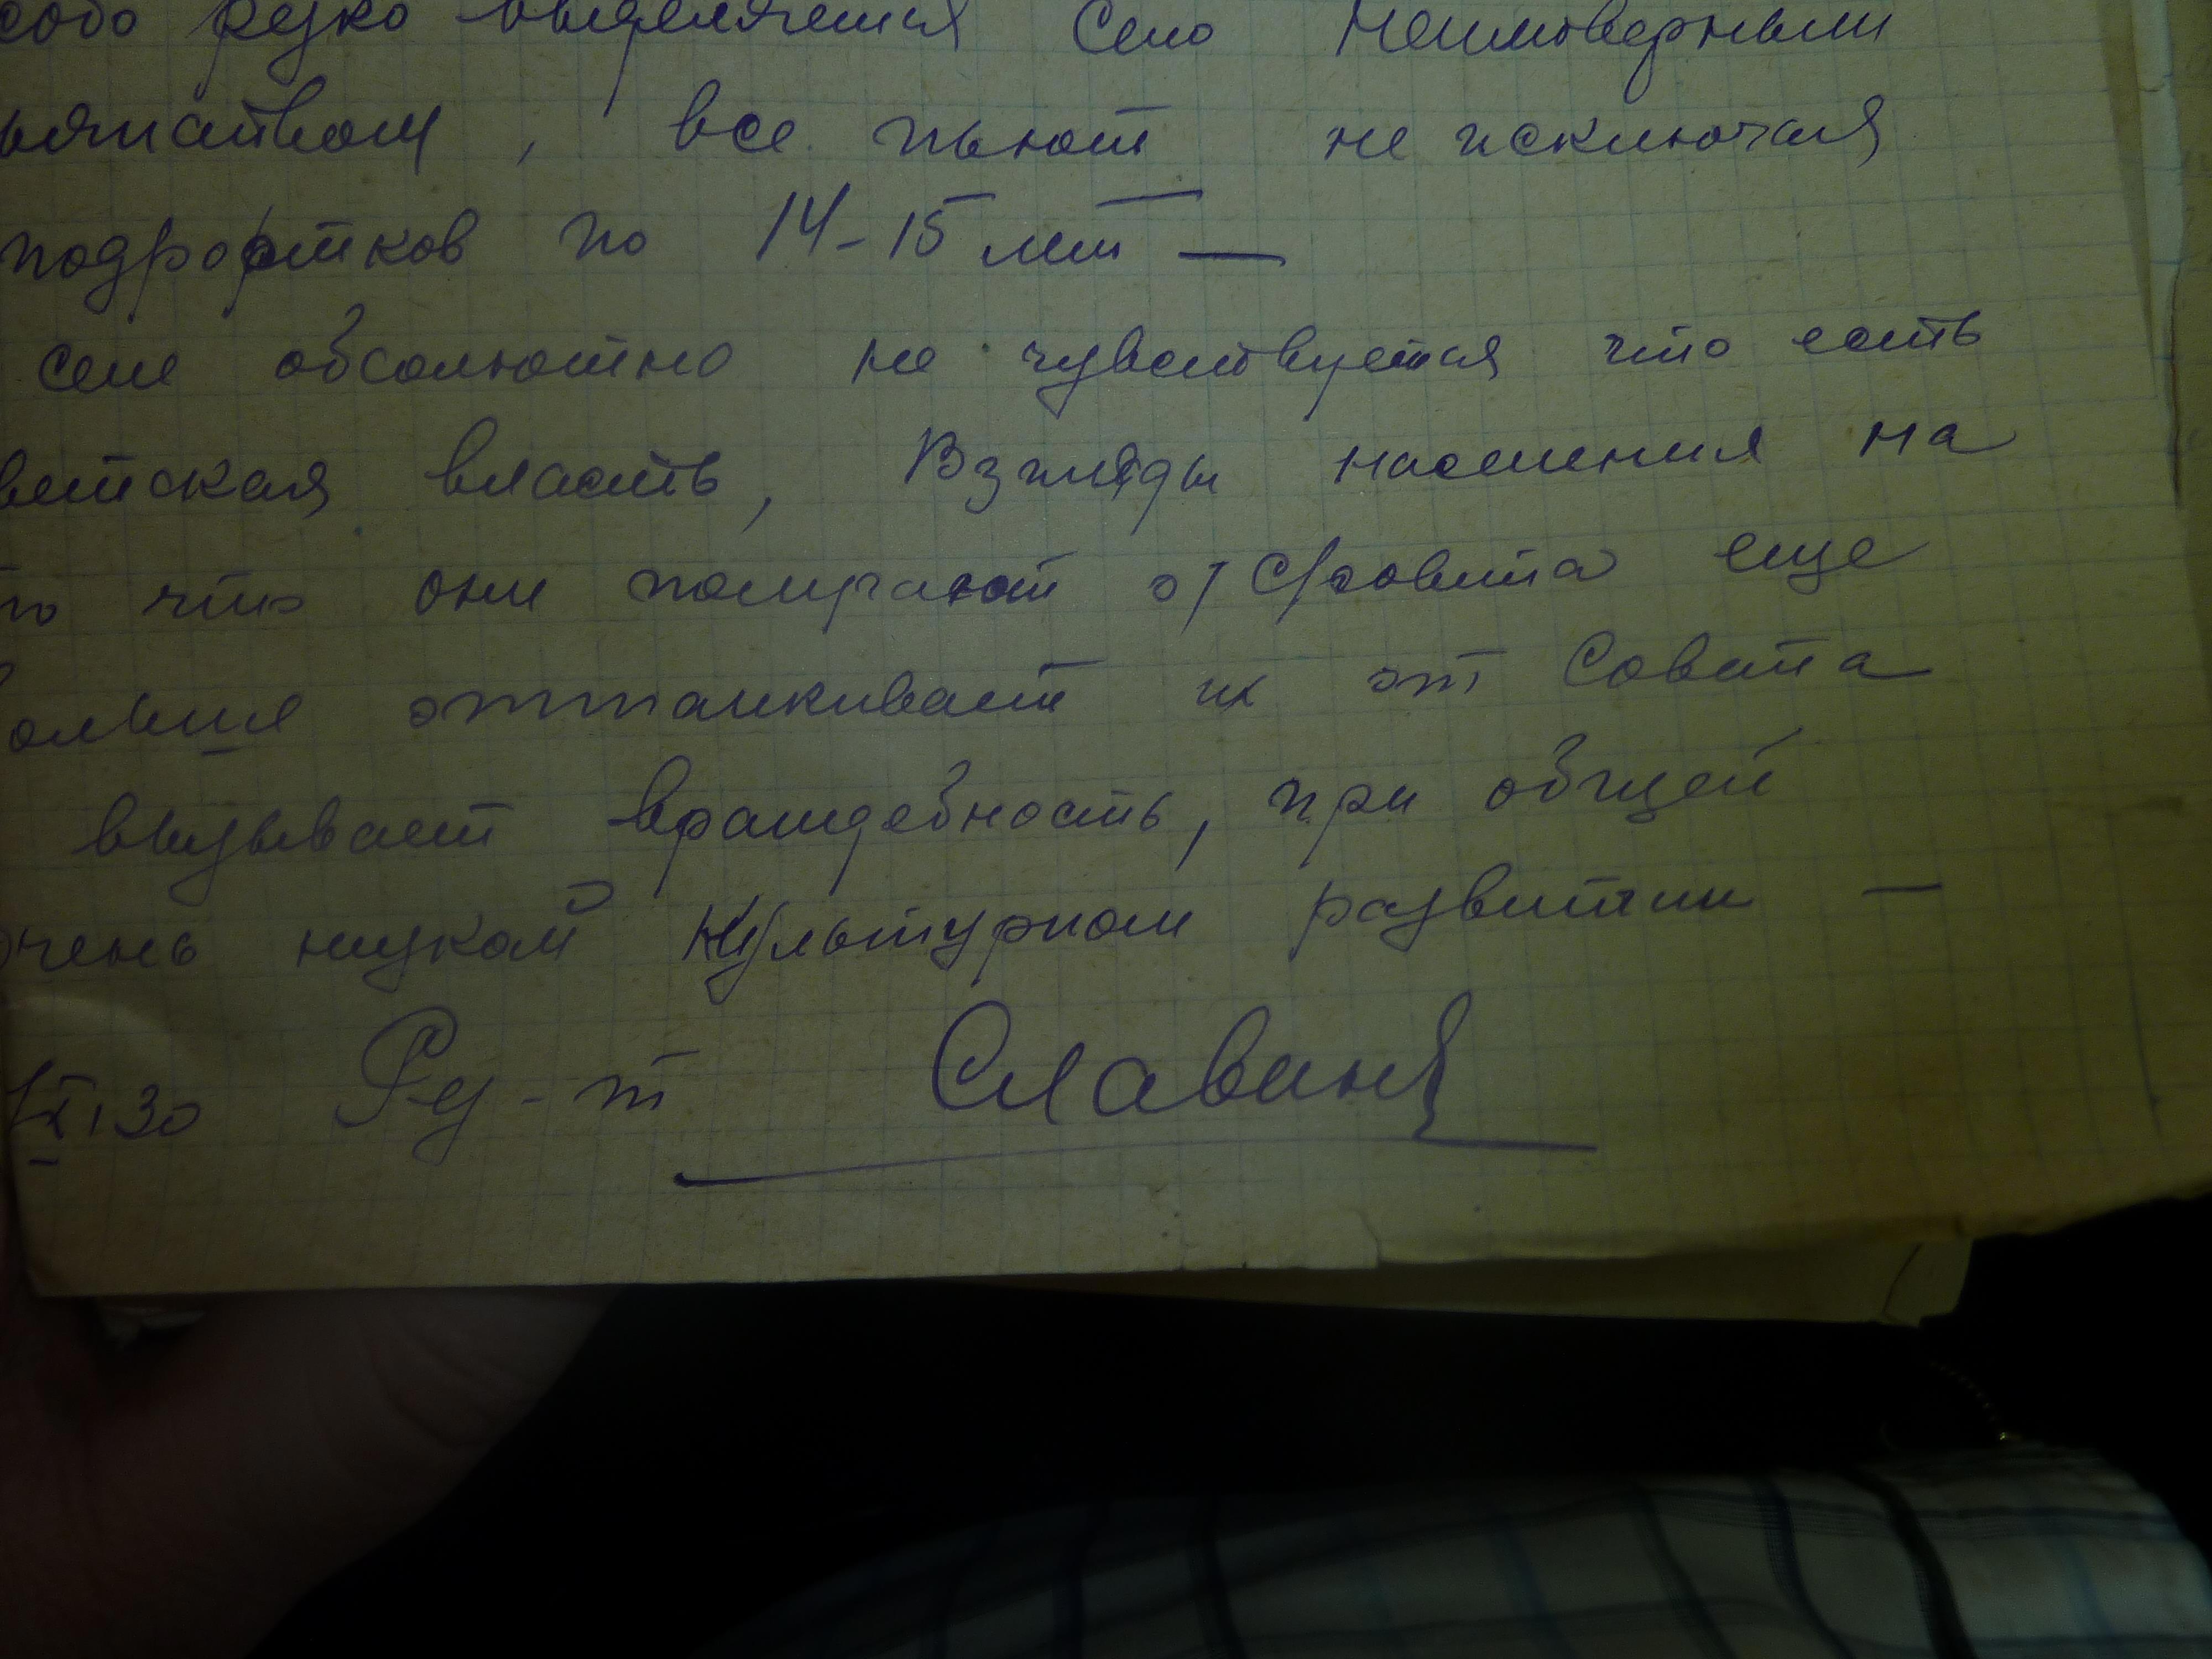 собо резко выделяется село неимоверным
ьянством, все пьют не исключая
подростков по 14-15 лет —
селе обсолютно не чувствуется что есть
ветская власть, Взгляды населения на
то что они получают от С/совета еще
больше отталкивает их от Совета
вызывает враждебность, при общей
очень низком культурном развитии —
IX 30 Ру-т Славин